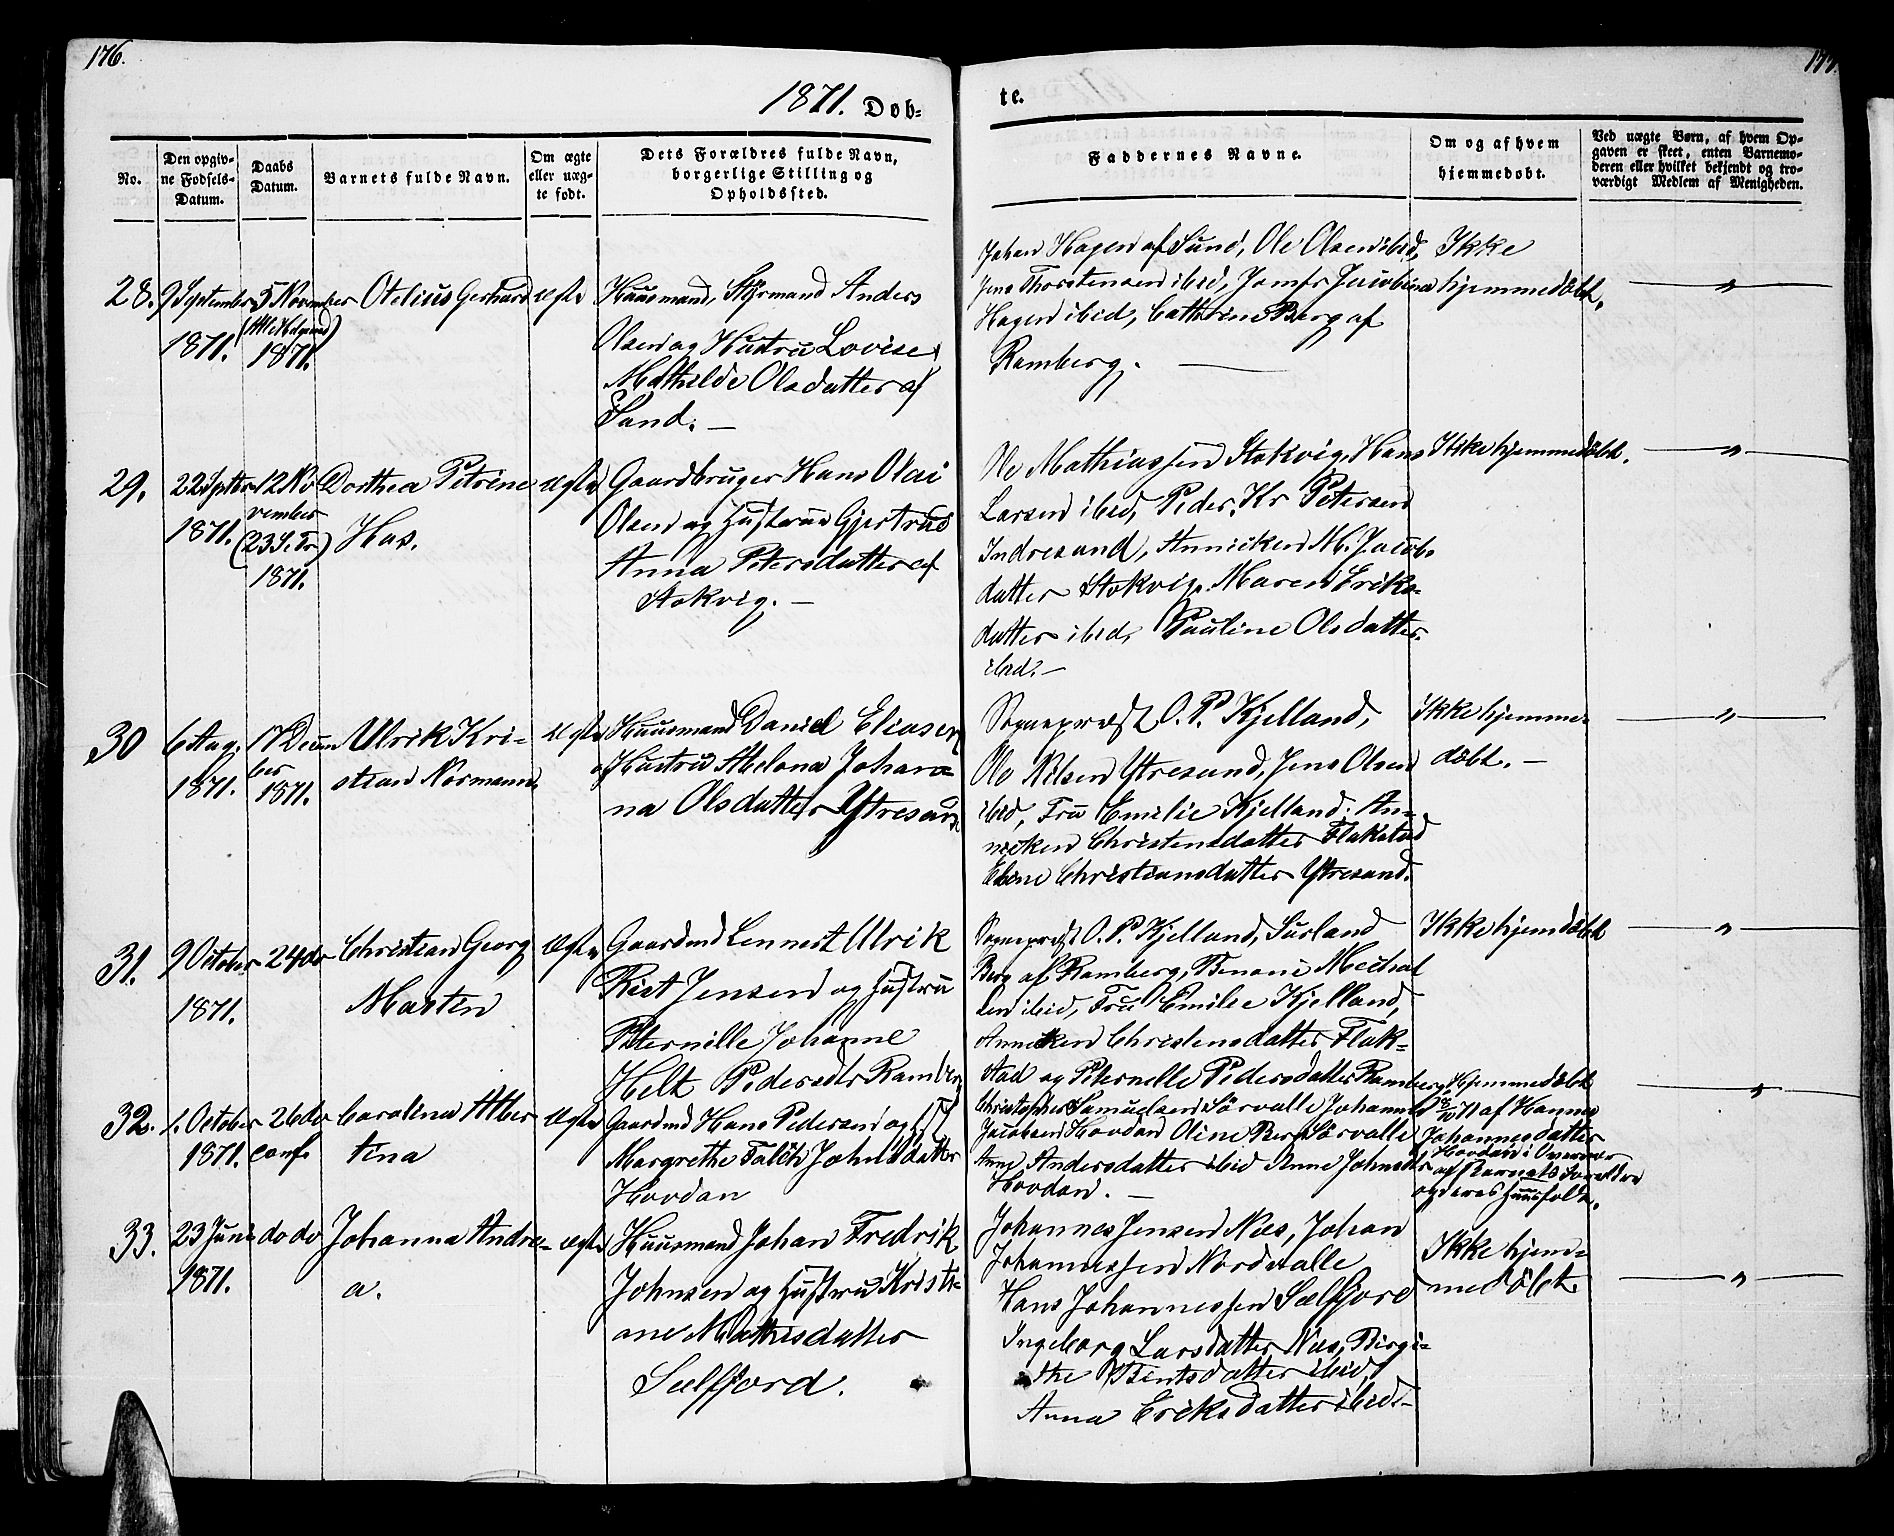 176.
177.
1871. Døb-
te.
No.
Den opgiv-
ne Fødsels-
Datum.
Daabs
Datum.
Barnets fulde Navn.
Om ægte
eller uæg-
te født.
Dets Forældres fulde Navn,
borgerlige Stilling og
Opholdssted.
Faddernes Navne.
Om og af hvem
hjemmedøbt.
Ved uægte Børn, af hvem Op-
gaven er skeet, enten Barnemo-
deren eller hvilket bekjendt og tro-
værdigt Medlem af Menigheden.
28.
9 September
1871.
5 November
(Alle Helgens)
1871.
Otelius Gerhard
ægte
Huusmand, Styrmand Anders
Olsen og Hustru Lovise
Mathilde Olsdatter af
Sand. —
Johan Hagen af Sund, Ole Olsen ibid,
Jens Thorstensen ibid, Jomfr Jacobina
Hagen ibid, Cathrine Berg af
Ramberg. —
Ikke
hjemmedøbt.
— " —
29.
22 Septbr
1871.
12 No
vember
(23 S. Tr.)
1871.
Dorthea Petrine
Has.
ægte
Gaardbruger Hans Olai
Olsen og Hustrue Gjertrud
Anna Petersdatter af
Stokvig. —
Ole Mathiassen Stokvig, Hans
Larsen ibid, Peder Kr Petersen
Indresand, Anniken M. Jacobs
datter Stokvig, Maren Eriks-
datter ibid, Pauline Olsdatter
ibid. —
Ikke hjemmedøbt.
— " —
30
6 Aug.
1871.
17 Decem
ber
1871.
Ulrik Kri-
stian Normann
ægte
Huusmand Daniel Eliasen
og Hustru Abelona Johan-
na Olsdatter Ytresand
Sognepræst O. P. Kjelland,
Ole Nilsen Ytresand, Jens Olsen
ibid, Fru Emilie Kjelland. An-
nicken Christensdatter Flakstad
Eline Christiansdatter Ytresand.
Ikke hjemme-
døbt. —
— " —
31.
9 October
1871.
24 do
Christian Georg
Marten
Ægte
Gaardmd Lennert Ulrik
Rist Jensen og Hustru
Peternille Johanne
Helt Pedersdtr Ramberg
Sognepræst O. P. Kjelland,
Berg af Ramberg, Benoni Meehal
sen ibid, Fru Emilie Kjelland,
Anneken Christensdatter Flak-
stad og Peternelle Pedersdatter Ramberg
Ikke hjemdøbt
— " —
32.
1. October
1871.
26 do
conf
Carolina Alber
tina
Ægte
Gaardmd Hans Pedersen og Hst
Margrethe Falch Johnsdatter
Hovdan
Christopher Samuelsen Sørvalle Johannes
Jacobsen Hovdan Oline Berg Sørvalle
Anne Andersdatter ibid Anne Johnsdtr
Hovdan. —
Hjemmedøbt
8/10 71 af Hanna
Johannesdatter
Hovdan i Overvær
af Barnets Foreldre
og deres Huusfolk.
— " —
33.
23 Juni
1871.
do do
Johanna Andre-
a.
ægte
Huusmand Johan Fredrik
Johnsen og Hustru Kristi-
ane Mathisdatter
Sælfjord.
Johannes Jensen Næs, Johan
Johannessen Nordvalle
Hans Johannessen Sælfjord
Ingeborg Larsdatter Næs, Birgi-
the Bentsdatter ibid,
Anna Eriksdatter ibid. —
Ikke hjem-
medøbt.
— " —